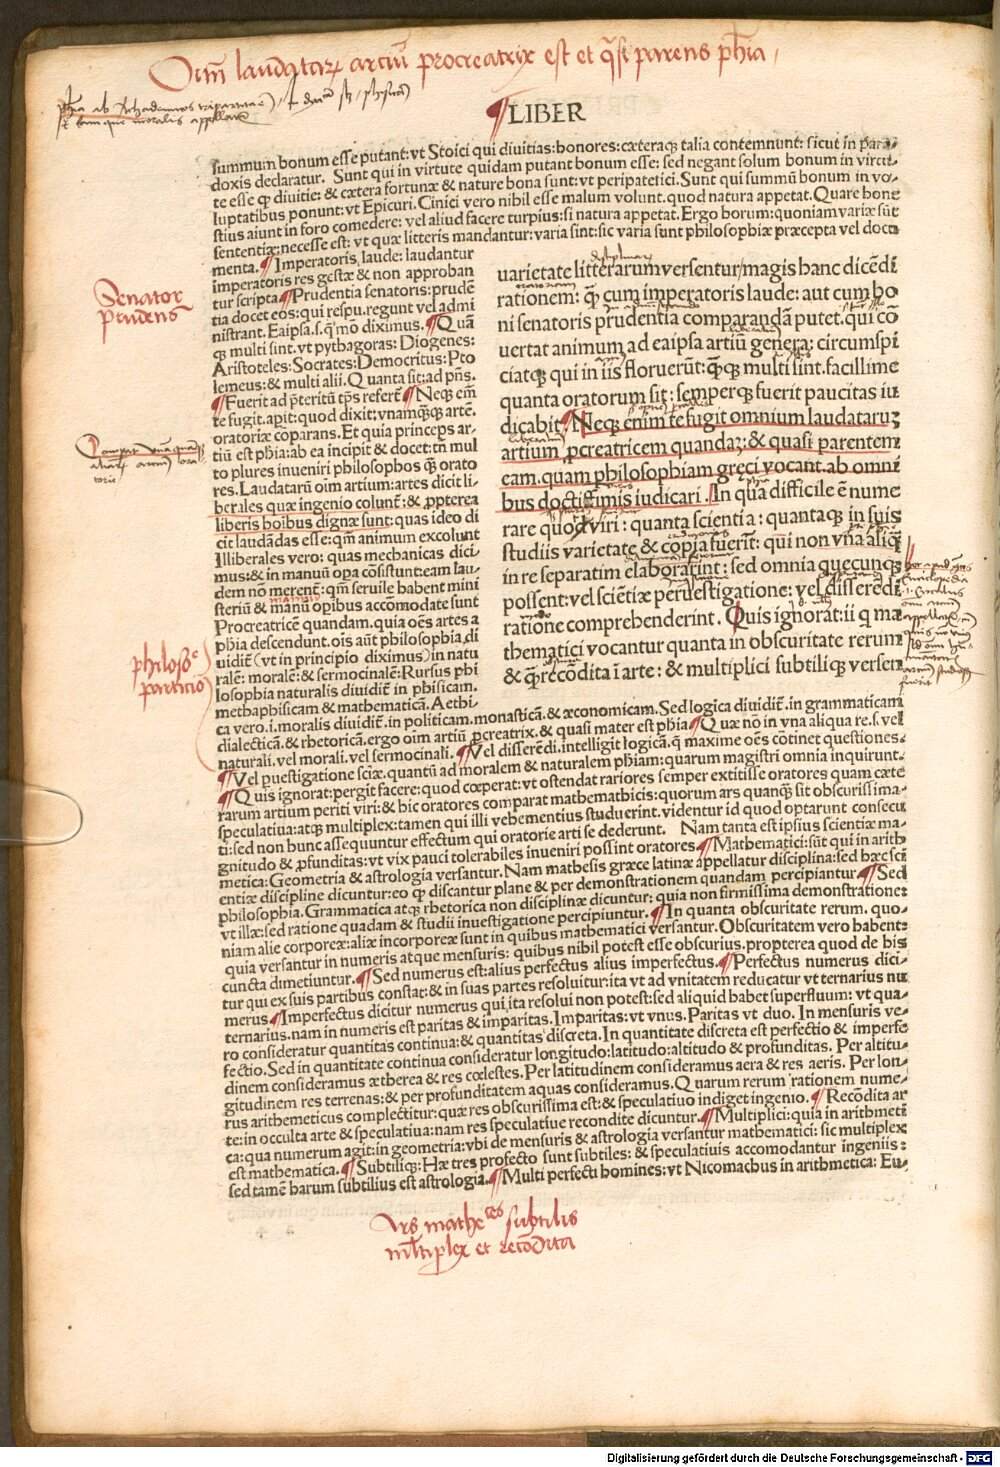 Oīm laudatarꝝ artiū procreatrix est et q̄si parens ph̄ia
¶LIBER
summum bonum esse putant: vt Stoici qui diuitias: honores: cæteraq; talia contemnunt: sicut in para-
doxis declaratur. Sunt qui in virtute quidam putant bonum esse: sed negant solum bonum in virtu-
te esse qꝫ diuitie: & cætera fortunæ & nature bona sunt: vt peripatetici. Sunt qui summū bonum in vo-
luptatibus ponunt: vt Epicuri. Cinici vero nihil esse malum volunt. quod natura appetat. Quare hone
stius aiunt in foro comedere: vel aliud facere turpius: si natura appetat. Ergo horum: quoniam variæ sūt
sententiæ: necesse est: vt quæ litteris mandantur: varia sint: sic varia sunt philosophiæ præcepta vel docu
menta. ¶Imperatoris laude: laudantur
imperatoris res gestæ & non approban
tur scripta ¶Prudentia senatoris: prudē
tia docet eos: qui respu. regunt vel admi
nistrant. Eaipsa. s. q̄mō diximus. ¶Quā
qꝫ multi sint. vt pythagoras: Diogenes:
Aristoteles: Socrates: Democritus: Pto
lemeus: & multi alii. Quanta sit: ad pn̄s.
¶Fuerit ad p̄teritū tp̄s refert ¶Neqꝫ em̄
te fugit. apit: quod dixit: vnamq̄qꝫ artē.
oratoriæ cōparans. Et quia princeps ar-
tiū est phīa: ab ea incipit & docet: tn̄ mul
to plures inueniri philosophos q̄ꝫ orato
res. Laudatarū oīm artium: artes dicit li-
berales quæ ingenio colunt̄: & ꝓpterea
liberis hoībus dignæ sunt: quas ideo di
cit laudādas esse: qm̄ animum excolunt
Illiberales vero: quas mechanicas dici
mus: & in manuū opa cōsistunt: eam lau-
dem nō merent̄: qm̄ seruile habent mini
steriū & manū opibus accōmodate sunt
Procreatricē quandam. quia oēs artes a
phīa descendunt. oīs aūt philosophia. di
uidit̄ (vt in principio diximus) in natu
ralē: moralē: & sermocinalē: Rursus phi
losophia naturalis diuidit̄ in phisicam.
methaphisicam & mathematicā. Aethi-
ca vero. i. moralis diuidit̄. in politicam. monasticā. & æconomicam. Sed logica diuidit̄. in grammaticam
dialecticā. & rhetoricā. ergo oīm artiū ꝓcreatrix. & quasi mater est phīa ¶Quæ nō in vna aliqua re. s. vel
naturali. vel morali. vel sermocinali. ¶Vel disserēdi. intelligit logicā. q̄ maxime oēs cōtinet questiones-
¶Vel ꝑuestigatione sciæ. quantū ad moralem & naturalem phīam: quarum magistri omnia inquirunt-
¶Quis ignorat: pergit facere: quod cœperat: vt ostendat rariores semper extitisse oratores quam cæte
rarum artium periti viri: & hic oratores comparat mathemathicis: quorum ars quanq̄ꝫ sit obscurissima-
speculatiua: atqꝫ multiplex: tamen qui illi vehementius studuerint. videntur id quod optarunt consecu
ti: sed non hunc assequuntur effectum qui oratorie arti se dederunt. Nam tanta est ipsius scientiæ ma-
gnitudo & ꝓfunditas: vt vix pauci tolerabiles inueniri possint oratores. ¶Mathematici: sūt qui in arith
metica: Geometria & astrologia versantur. Nam mathesis græce latinæ appellatur disciplina: sed hæc sci
entiæ discipline dicuntur: eo qꝫ discantur plane & per demonstrationem quandam percipiantur. ¶Sed
philosophia. Grammatica atqꝫ rhetorica non disciplinæ dicuntur: quia non firmissima demonstratione:
vt illæ: sed ratione quadam & studii inuestigatione percipiuntur. ¶In quanta obscuritate rerum. quo-
niam alie corporeæ: aliæ incorporeæ sunt in quibus mathematici versantur. Obscuritatem vero habent:
quia versantur in numeris atque mensuris: quibus nihil potest esse obscurius. propterea quod de his
cuncta dimetiuntur. ¶Sed numerus est: alius perfectus alius imperfectus. ¶Perfectus numerus dici-
tur qui ex suis partibus constat: & in suas partes resoluitur: ita vt ad vnitatem reducatur vt ternarius nu
merus ¶Imperfectus dicitur numerus qui ita resolui non potest: sed aliquid habet superfluum: vt qua-
ternarius. nam in numeris est paritas & imparitas. Imparitas: vt vnus. Paritas vt duo. In mensuris ve-
ro consideratur quantitas continua: & quantitas discreta. In quantitate discreta est perfectio & imperfe
fectio. Sed in quantitate continua consideratur longitudo: latitudo: altitudo & profunditas. Per altitu-
dinem consideramus ætherea & res cœlestes. Per latitudinem consideramus aera & res aeris. Per lon-
gitudinem res terrenas: & per profunditatem aquas consideramus. Quarum rerum rationem nume-
rus arithemeticus complectitur: quæ res obscurissima est: & speculatiuo indiget ingenio. ¶Recōdita ar
te: in occulta arte & speculatiua: nam res speculatiue recondite dicuntur. ¶Multiplici: quia in arithmeti
ca: qua numerum agit: in geometria: vbi de mensuris & astrologia versantur mathematici: sic multiplex
est mathematica. ¶Subtiliqꝫ: Hæ tres profecto sunt subtiles: & speculatiuis accomodantur ingeniis:
sed tamē harum subtilius est astrologia. ¶Multi perfecti homines: vt Nicomachus in arithmetica: Eu-
varietate litterarum versentur / magis hanc dicēdi
rationem: q̄ꝫ cum imperatoris laude: aut cum bo
ni senatoris prudentia comparandā putet. qui cō
uertat animum ad eaipsa artiū genera: circumspi
ciatqꝫ qui in iis floruerūt: q̄ꝫqꝫ multi sint. facillime
quanta oratorum sit: semperqꝫ fuerit paucitas iu
dicabit ¶Neqꝫ enim te fugit omnium laudataruꝫ
artium ꝓcreatricem quandaꝫ: & quasi parentem
eam. quam philosophiam gręci vocant. ab omni
bus doctissimis iudicari. In qua difficile ē nume
rare quod viri: quanta scientia: quantaqꝫ in suis
studiis varietate & copia fuerīt: qui non vna aliq̄
in re separatim elaborarint: sed omnia quecunqꝫ
possent: vel sciētiæ peruestigatione: vel disserēdi
ratione comprehenderint. Quis ignorat: ii q ma
thematici vocantur quanta in obscuritate rerum
& q̄ꝫ recōdita ī arte: & multiplici subtiliqꝫ versen
Senator
prudens
philoso⁹
particio
Ars mathe ces subtilis
mltiplex et recōdita
Digitalisierung gefördert durch die Deutsche Forschungsgemeinschaft - DFG